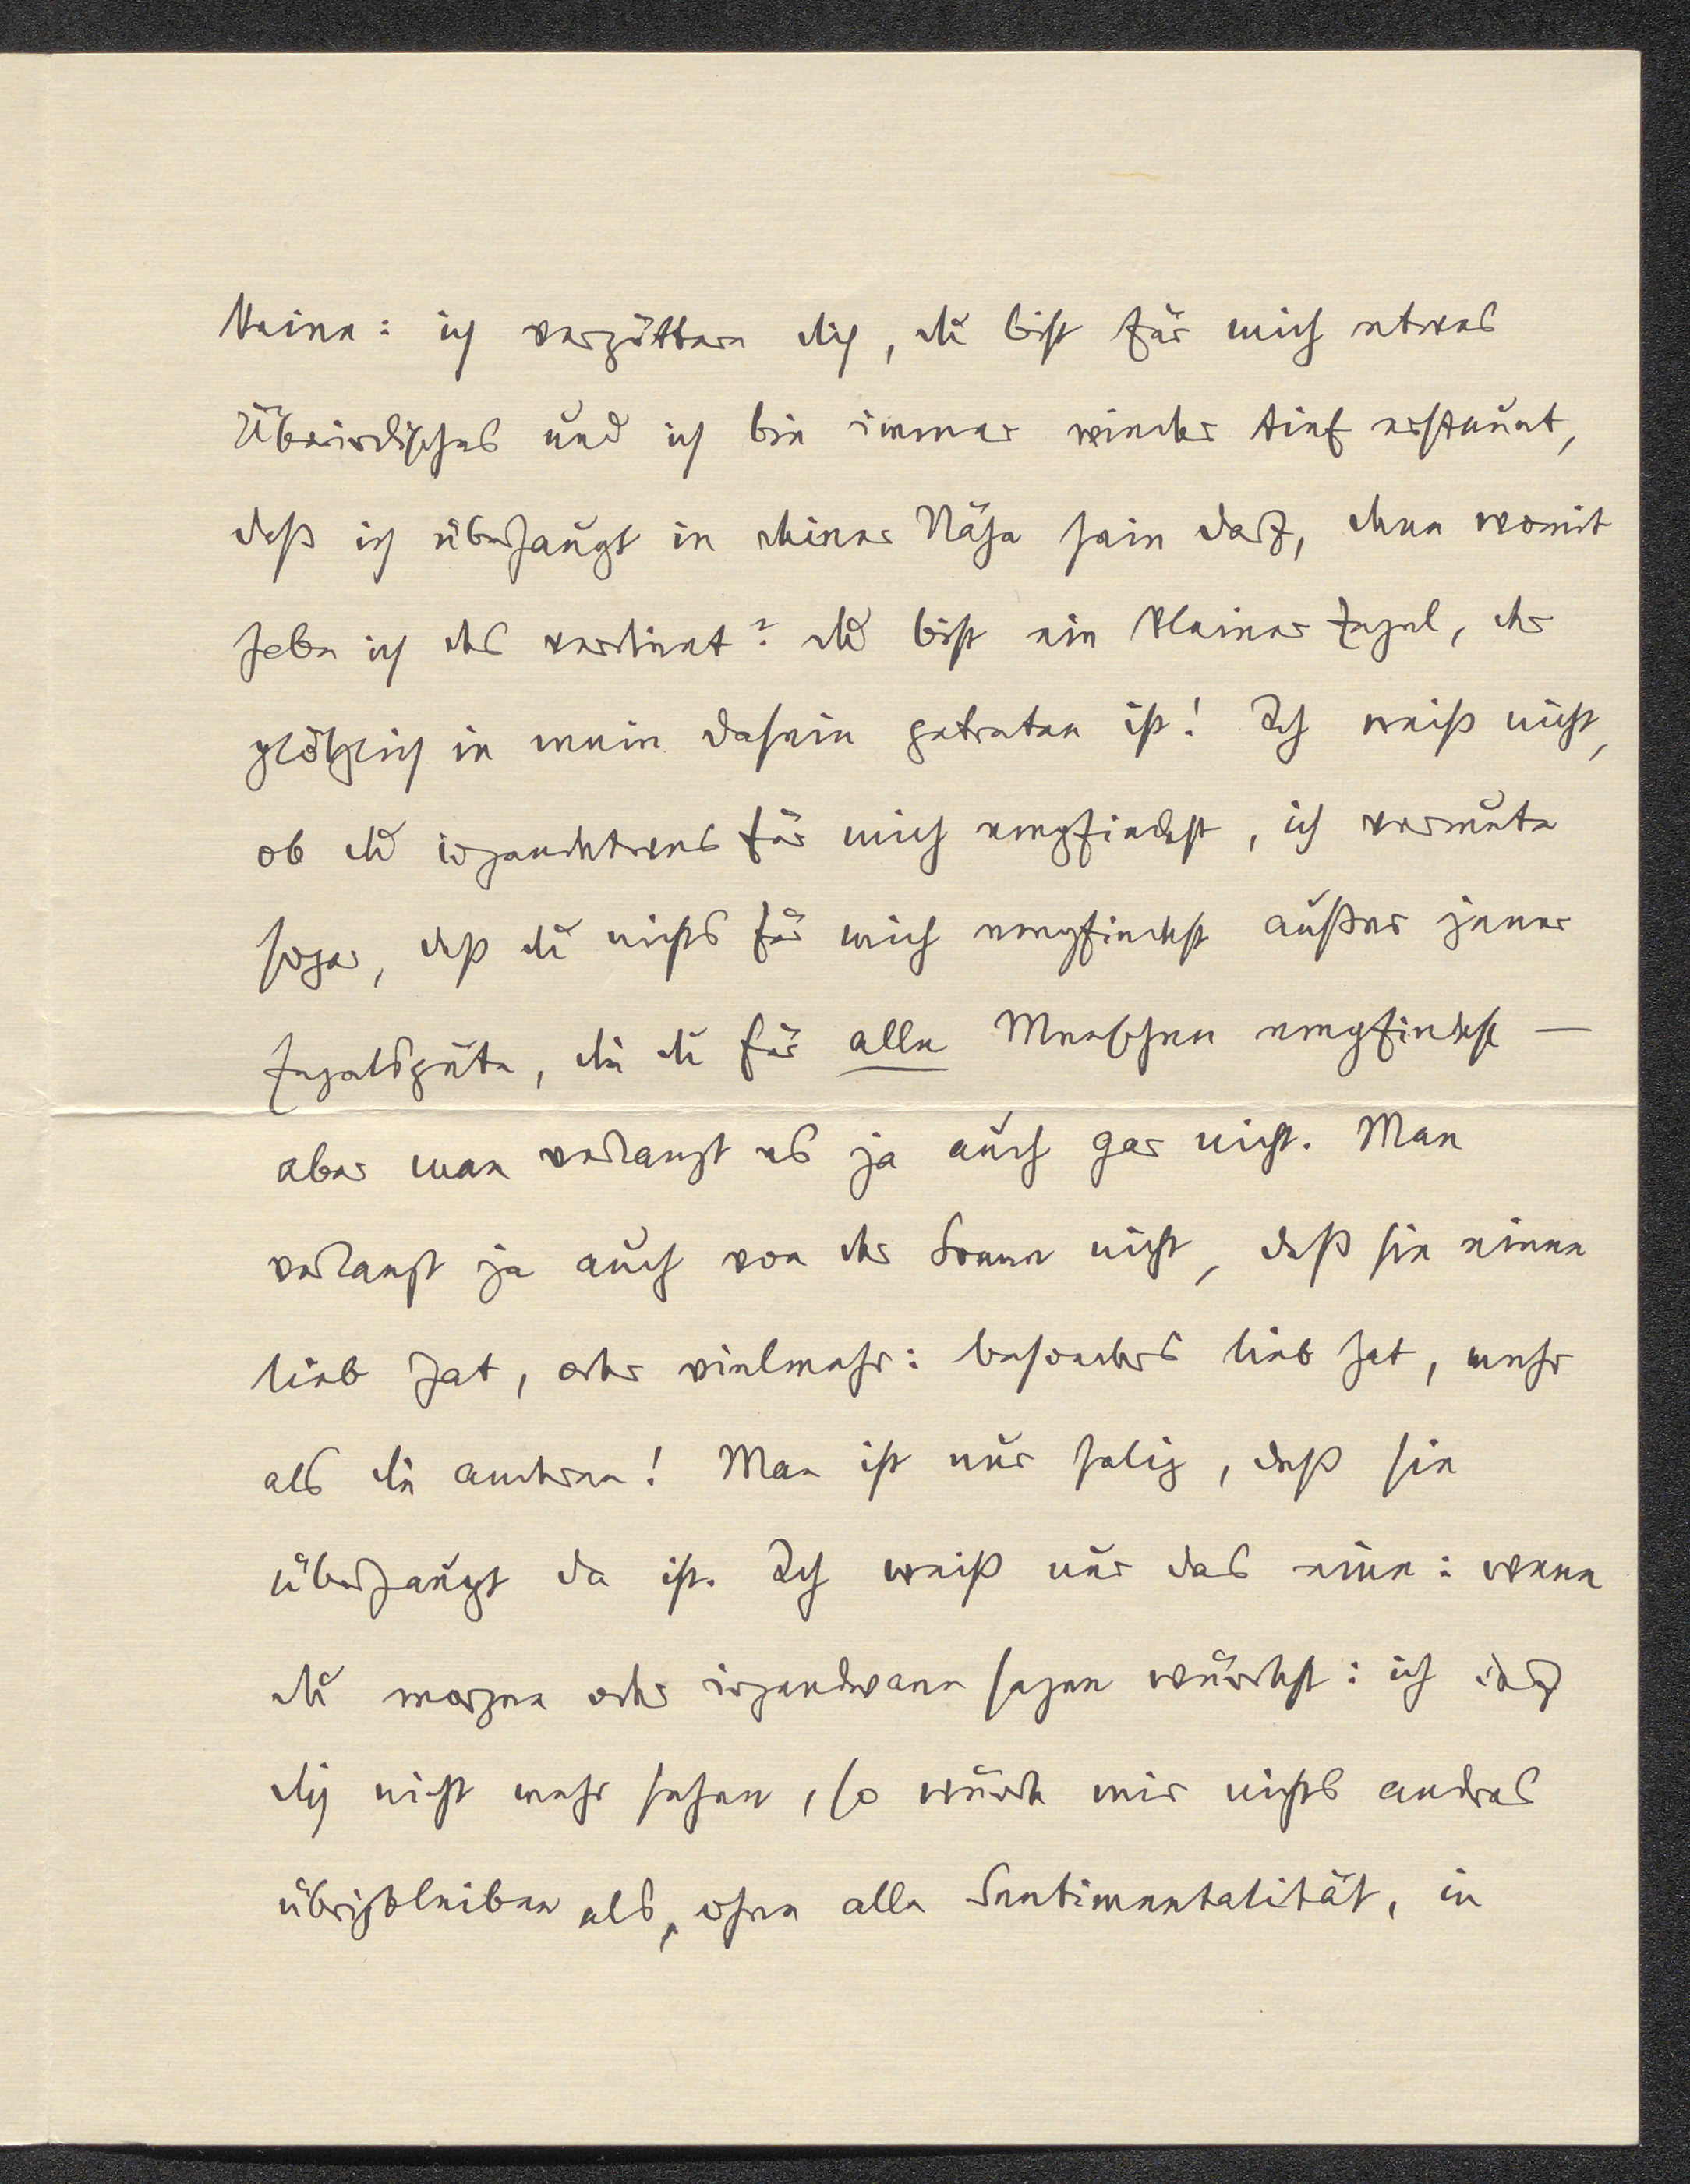 Kleine: ich vergöttere dich, du bist für mich etwas
Überirdisches und ich bin immer wieder tief erstaunt,
daß ich überhaupt in deiner Nähe sein darf, denn womit
habe ich das verdient? du bist ein kleiner Engel, der
plötzlich in mein Dasein getreten ist! Ich weiß nicht,
ob du irgendetwas für mich empfindest, ich vermute
sogar, daß du nichts für mich empfindest außer jener
Engelsgüte, die du für alle Menschen empfindest —
aber man verlangt es ja auch gar nicht. Man
verlangt ja auch von der Sonne nicht, daß sie einen
lieb hat, oder vielmehr: besonders lieb hat, mehr
als die anderen! Man ist nur selig, daß sie
überhaupt da ist. Ich weiß nur das eine: wenn
du morgen oder irgendwann sagen würdest: ich darf
dich nicht mehr sehen, so würde mir nichts andres
übrigbleiben als, ohne alle Sentimentalität, in